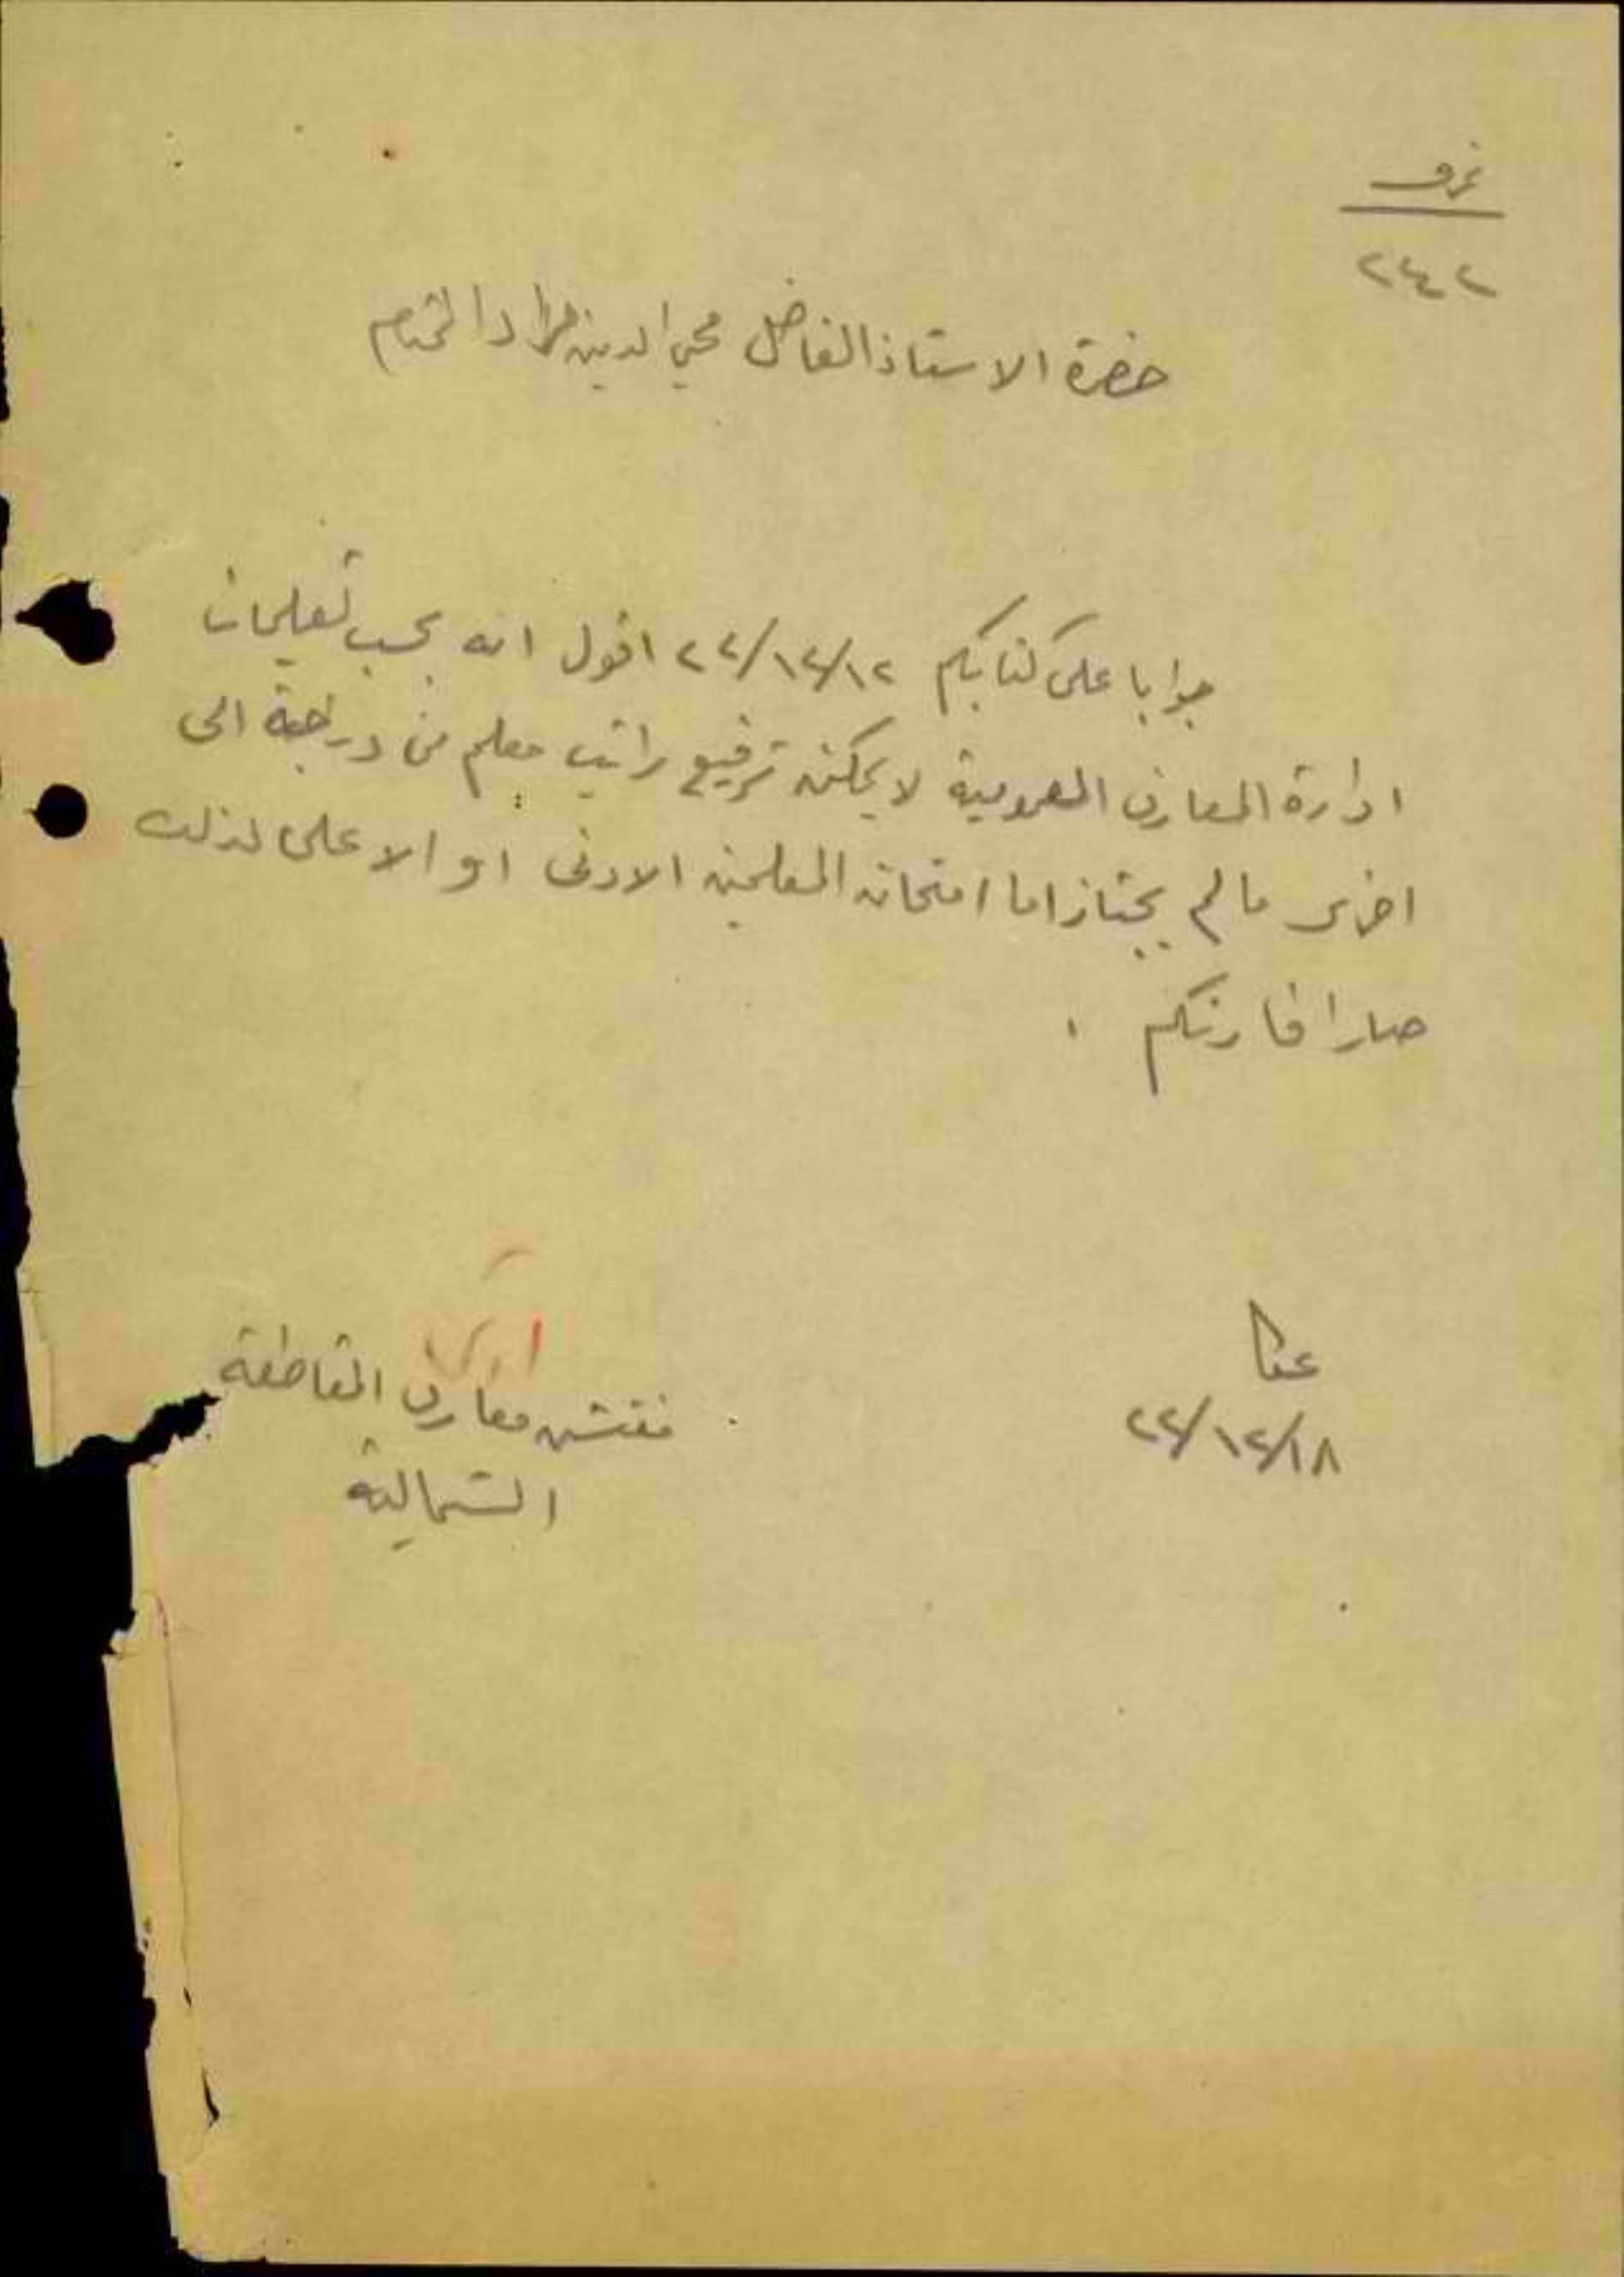 نمرو
٢٤٢
حضرة الاستاذ الفاضل محي الدين مراد المحترم
جوابا على كتابكم ٢٢/١٢/١٢ اقول انه بحسب تعليمات
ادارة المعارف العمومية لا يمكن ترفيع راتب معلم من درجة الى
اخرى ما لم يجتاز اما امتحان المعلمين الادنى او الاعلى لذلك
صار افادتكم .
عكا
٢٢/١٢/١٨
مفتش معارف المقاطعة
الشمالية